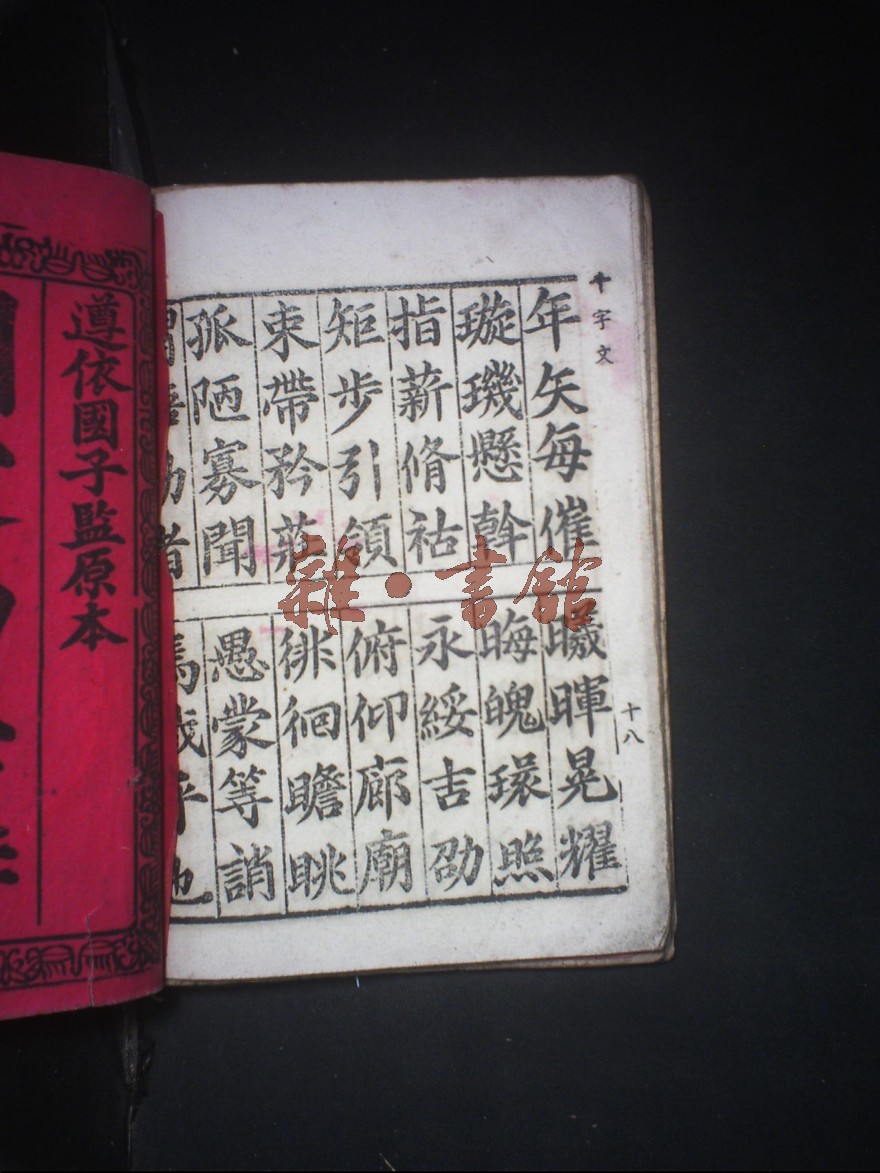 千字文
十八
年矢每催曦暉晃耀
璇璣懸斡晦魄環照
指薪脩祜永綏吉劭
矩步引領俯仰廊廟
束帶矜莊徘徊瞻眺
孤陋寡聞愚蒙等誚
謂語助者焉哉乎也
遵依國子監原本
雜·書館